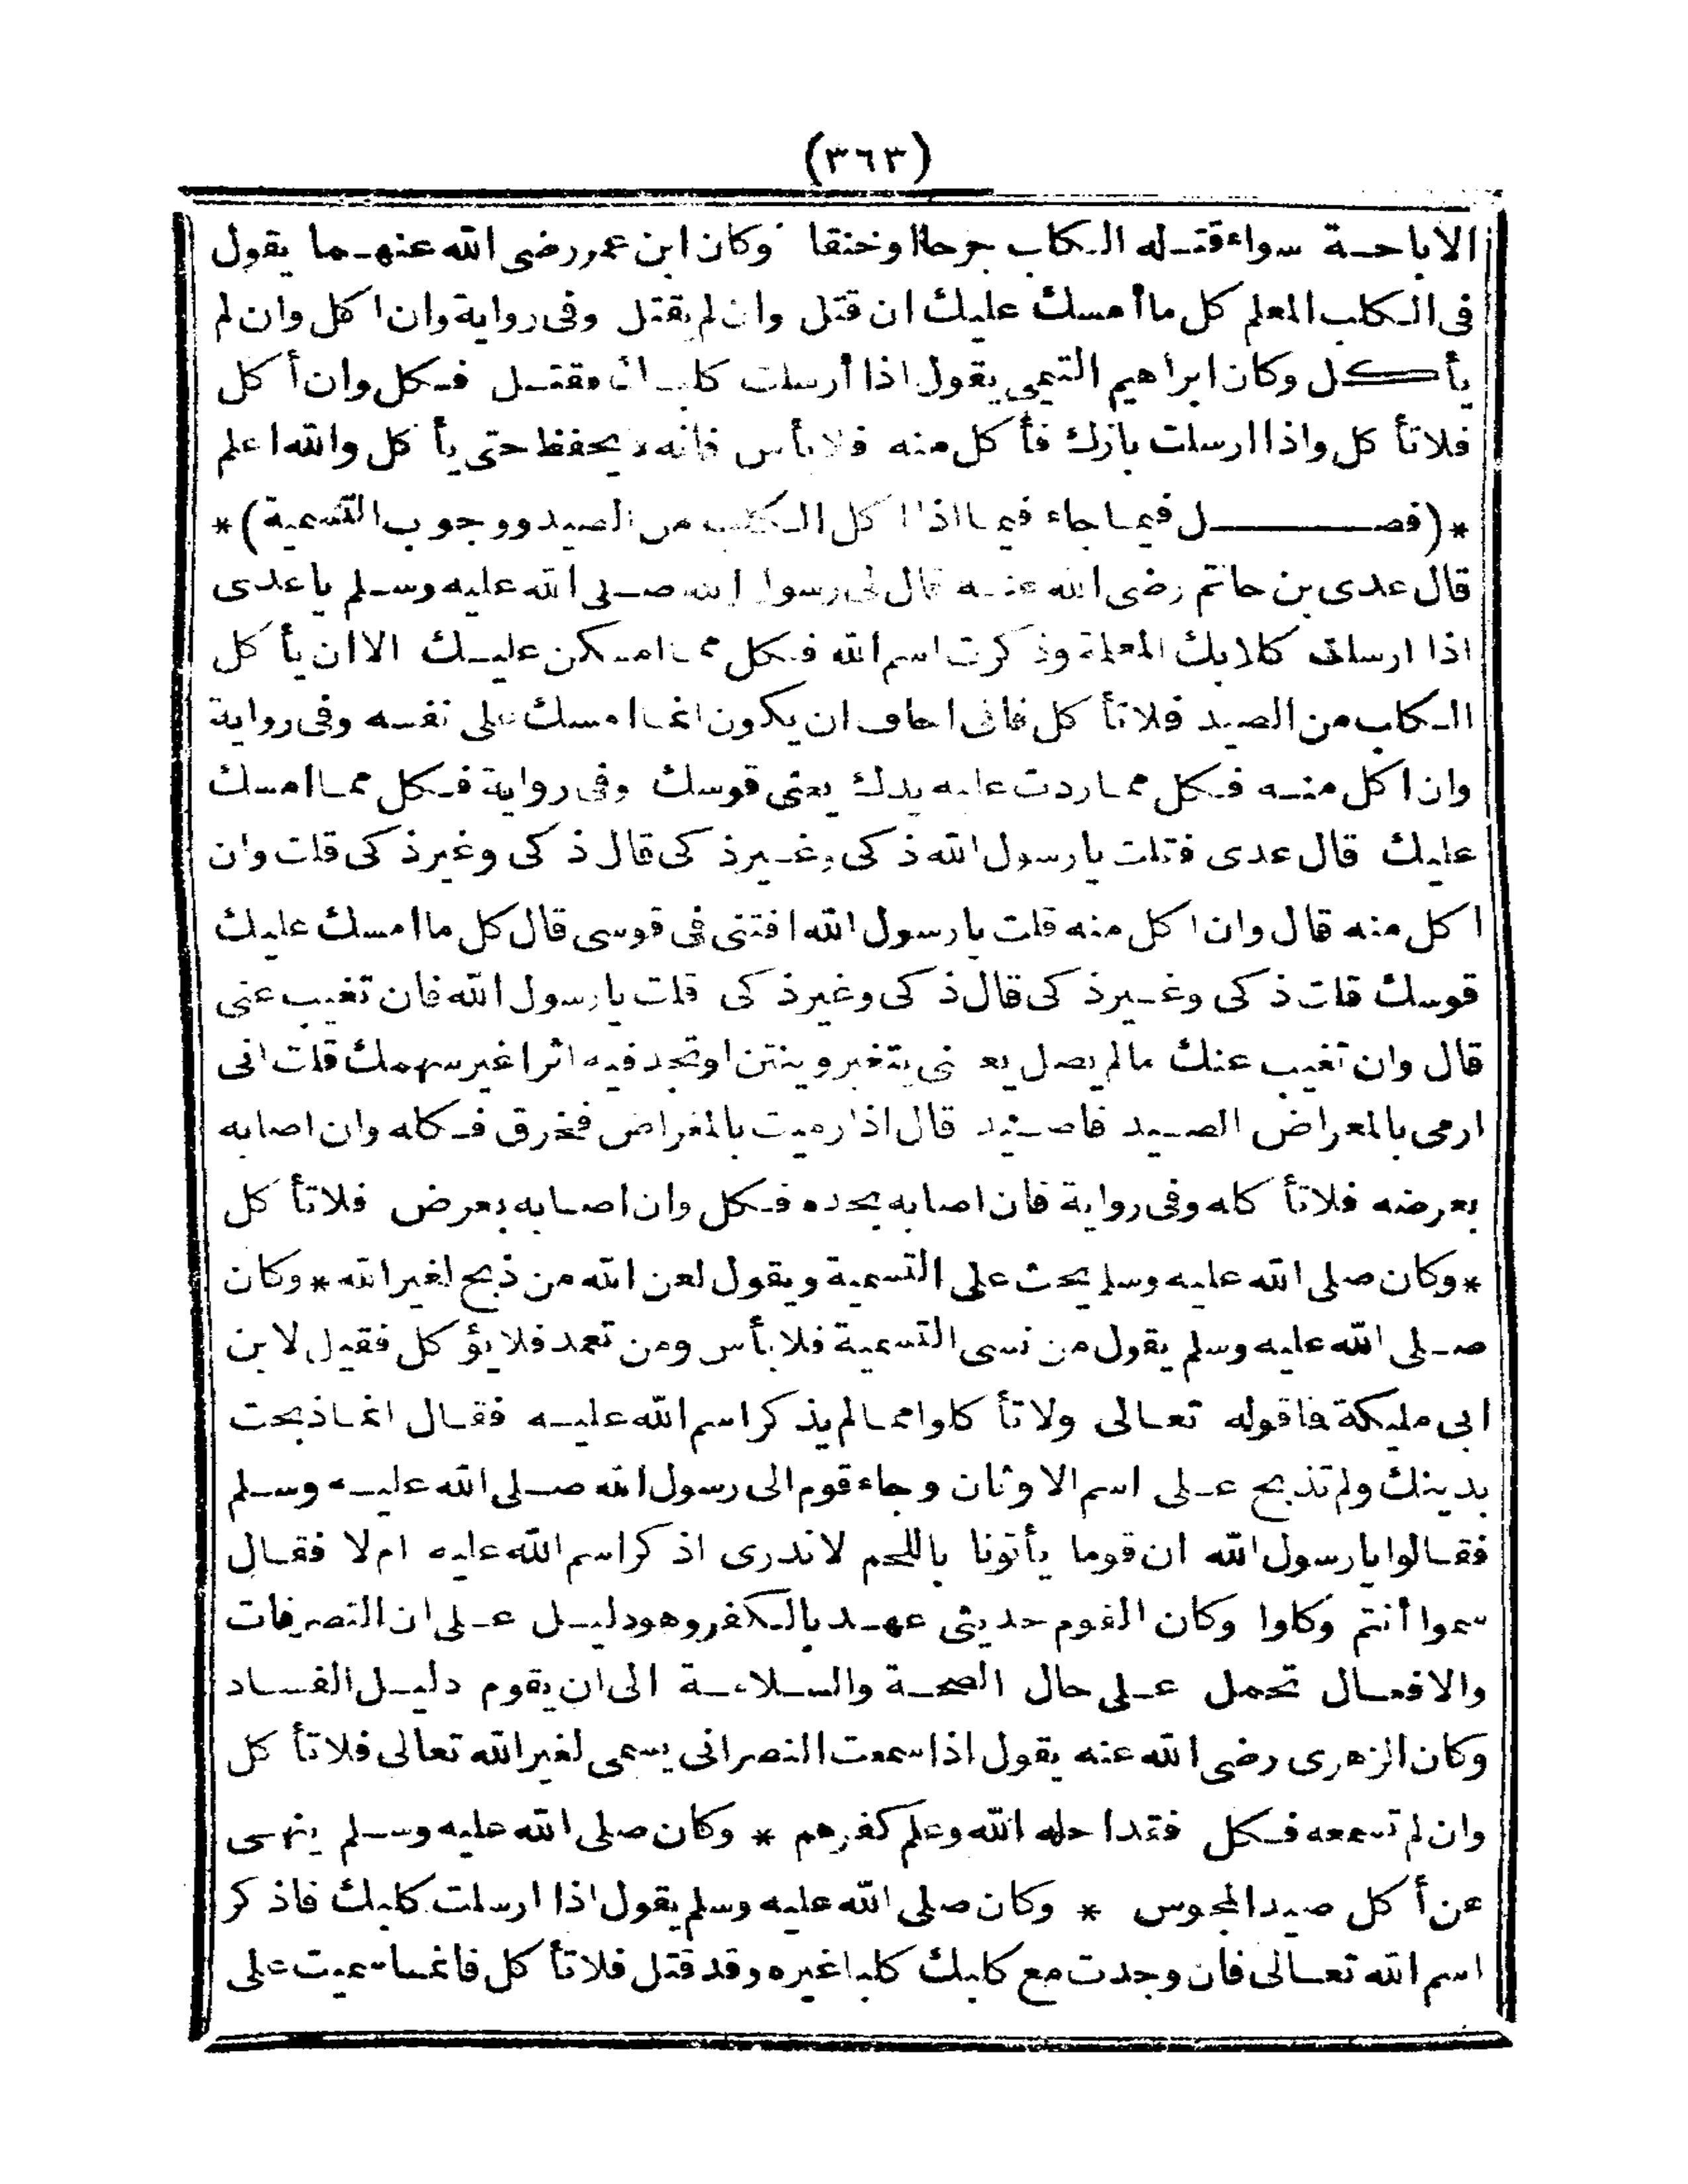 (٣٦٣)
الاباحة سواء قتله الكلب جرحا او خنقا وكان ابن عمر رضى الله عنهما يقول
فى الكلب المعلم كل ما أمسك عليك ان قتل وان لم يقتل وفى رواية وان اكل وان لم
يأكل وكان ابراهيم التيمى يقول اذا أرسلت كلبك فقتل فكل وان أكل
فلا تأكل واذا ارسلت بازك فأكل منه فلا بأس فانه لا يحفظ حتى يأكل والله اعلم
*(فصل فيما جاء فيما اذا اكل الكلب من الصيد ووجوب التسمية)*
قال عدى بن حاتم رضى الله عنه قال لى رسول الله صلى الله عليه وسلم يا عدى
اذا ارسلت كلابك المعلمة وذكرت اسم الله فكل مما امسكن عليك الا ان يأكل
الكلب من الصيد فلا تأكل فانى اخاف ان يكون انما امسك على نفسه وفى رواية
وان اكل منه فكل مما ردت عليه يدك يعنى قوسك وفى رواية فكل مما امسك
عليك قال عدى فقلت يا رسول الله ذكى وغير ذكى قال ذكى وغير ذكى قلت وان
اكل منه قال وان اكل منه قلت يا رسول الله افتنى فى قوسى قال كل ما امسك عليك
قوسك قلت ذكى وغير ذكى قال ذكى وغير ذكى قلت يا رسول الله فان تغيب عنى
قال وان تغيب عنك ما لم يصل يعنى يتغير وينتن او تجد فيه اثرا غير سهمك قلت انى
ارمى بالمعراض الصيد فاصيد قال اذا رميت بالمعراض فخرق فكله وان اصابه
بعرضه فلا تأكله وفى رواية فان اصابه بحده فكل وان اصابه بعرض فلا تأكل
*وكان صلى الله عليه وسلم يحث على التسمية ويقول لعن الله من ذبح لغير الله * وكان
صلى الله عليه وسلم يقول من نسى التسمية فلا بأس ومن تعمد فلا يؤكل فقيل لابن
ابى مليكة فما قوله تعالى ولا تأكلوا مما لم يذكر اسم الله عليه فقال انما ذبحت
بدينك ولم تذبح على اسم الاوثان وجاء قوم الى رسول الله صلى الله عليه وسلم
فقالوا يا رسول الله ان قوما يأتونا باللحم لا ندرى اذكر اسم الله عليه ام لا فقال
سموا أنتم وكلوا وكان القوم حديثى عهد بالكفر وهو دليل على ان التصرفات
والافعال تحمل على حال الصحة والسلامة الى ان يقوم دليل الفساد
وكان الزهرى رضى الله عنه يقول اذا سمعت النصرانى يسمى لغير الله تعالى فلا تأكل
وان لم تسمعه فكل فقد احله الله وعلم كفرهم * وكان صلى الله عليه وسلم ينهى
عن أكل صيد المجوس * وكان صلى الله عليه وسلم يقول اذا ارسلت كلبك فاذكر
اسم الله تعالى فان وجدت مع كلبك كلبا غيره وقد قتل فلا تأكل فانما سميت على